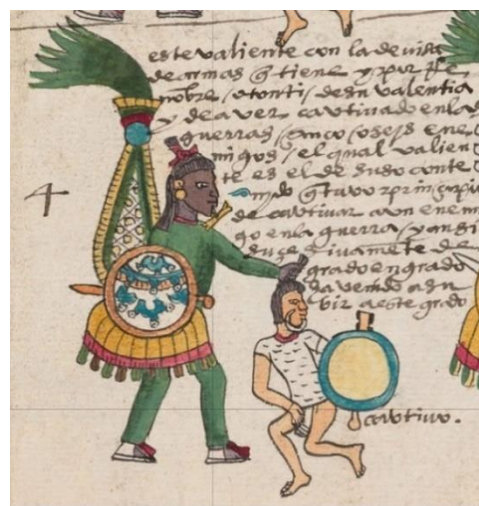 este valiente con la devisa
de armas q̃ tiene y por rre
nõbre / otonti / de su valentia
y de aver cautivado en las
guerras / çinco o seys ene
migos / el qual valien
te es el de suso conte
nido q̃ tuvo prinçipio
de cautivar a un enemi
go en la guerra / y ansi
suçesivamẽte de
grado en grado
a venido a su
bir a este grado
4
cautivo.